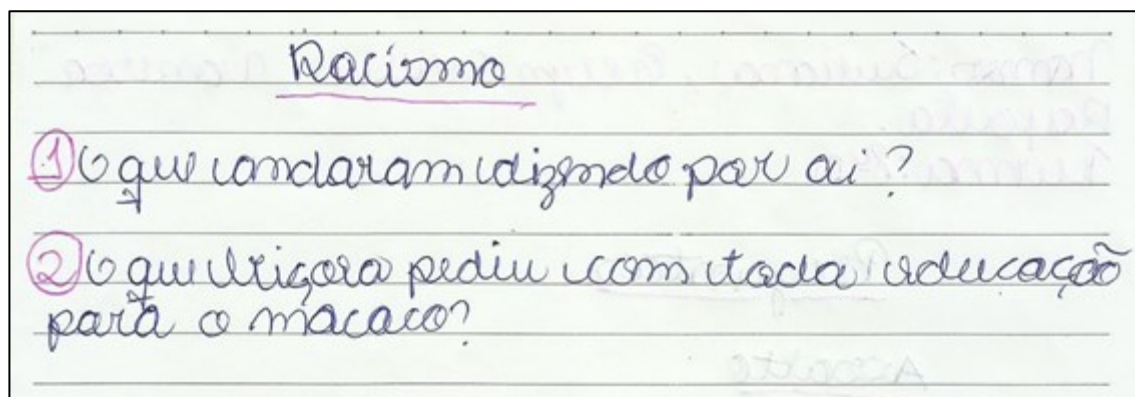 Racismo
1 O que andaram dizendo por ai?
2 O que Uiçara pediu com toda educação
para o macaco?